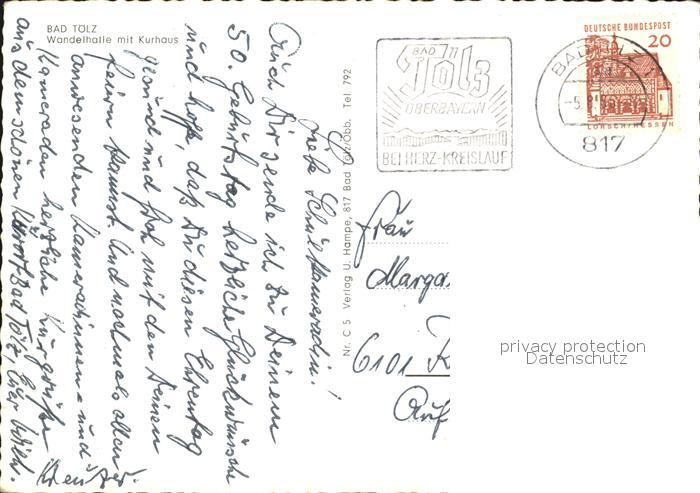 BAD TÖLZ
Wandelhalle mit Kurhaus
Liebe Schulkameradin!
Auch Dir sende ich zu Deinem
50. Geburtstag herzliche Glückwünsche
und hoffe, daß Du diesen Ehrentag
gesund und froh mit den Deinen
feiern kannst. Und nochmals allen
anwesenden Kameradinnen - und
Kameraden herzliche Kurgrüße
aus dem schönen Kurort Bad Tölz Euer
Nr. C 5 Verlag U. Hampe, 817 Bad Tölz/Obb. Tel 792
BAD
Tölz
OBERBAYERN
BEI HERZ-KREISLAUF
BAD
-5.
817
DEUTSCHE BUNDESPOST
20
LORSCH/HESSEN
Frau
Marga
6101
Auf
privacy protection
Datenschutz